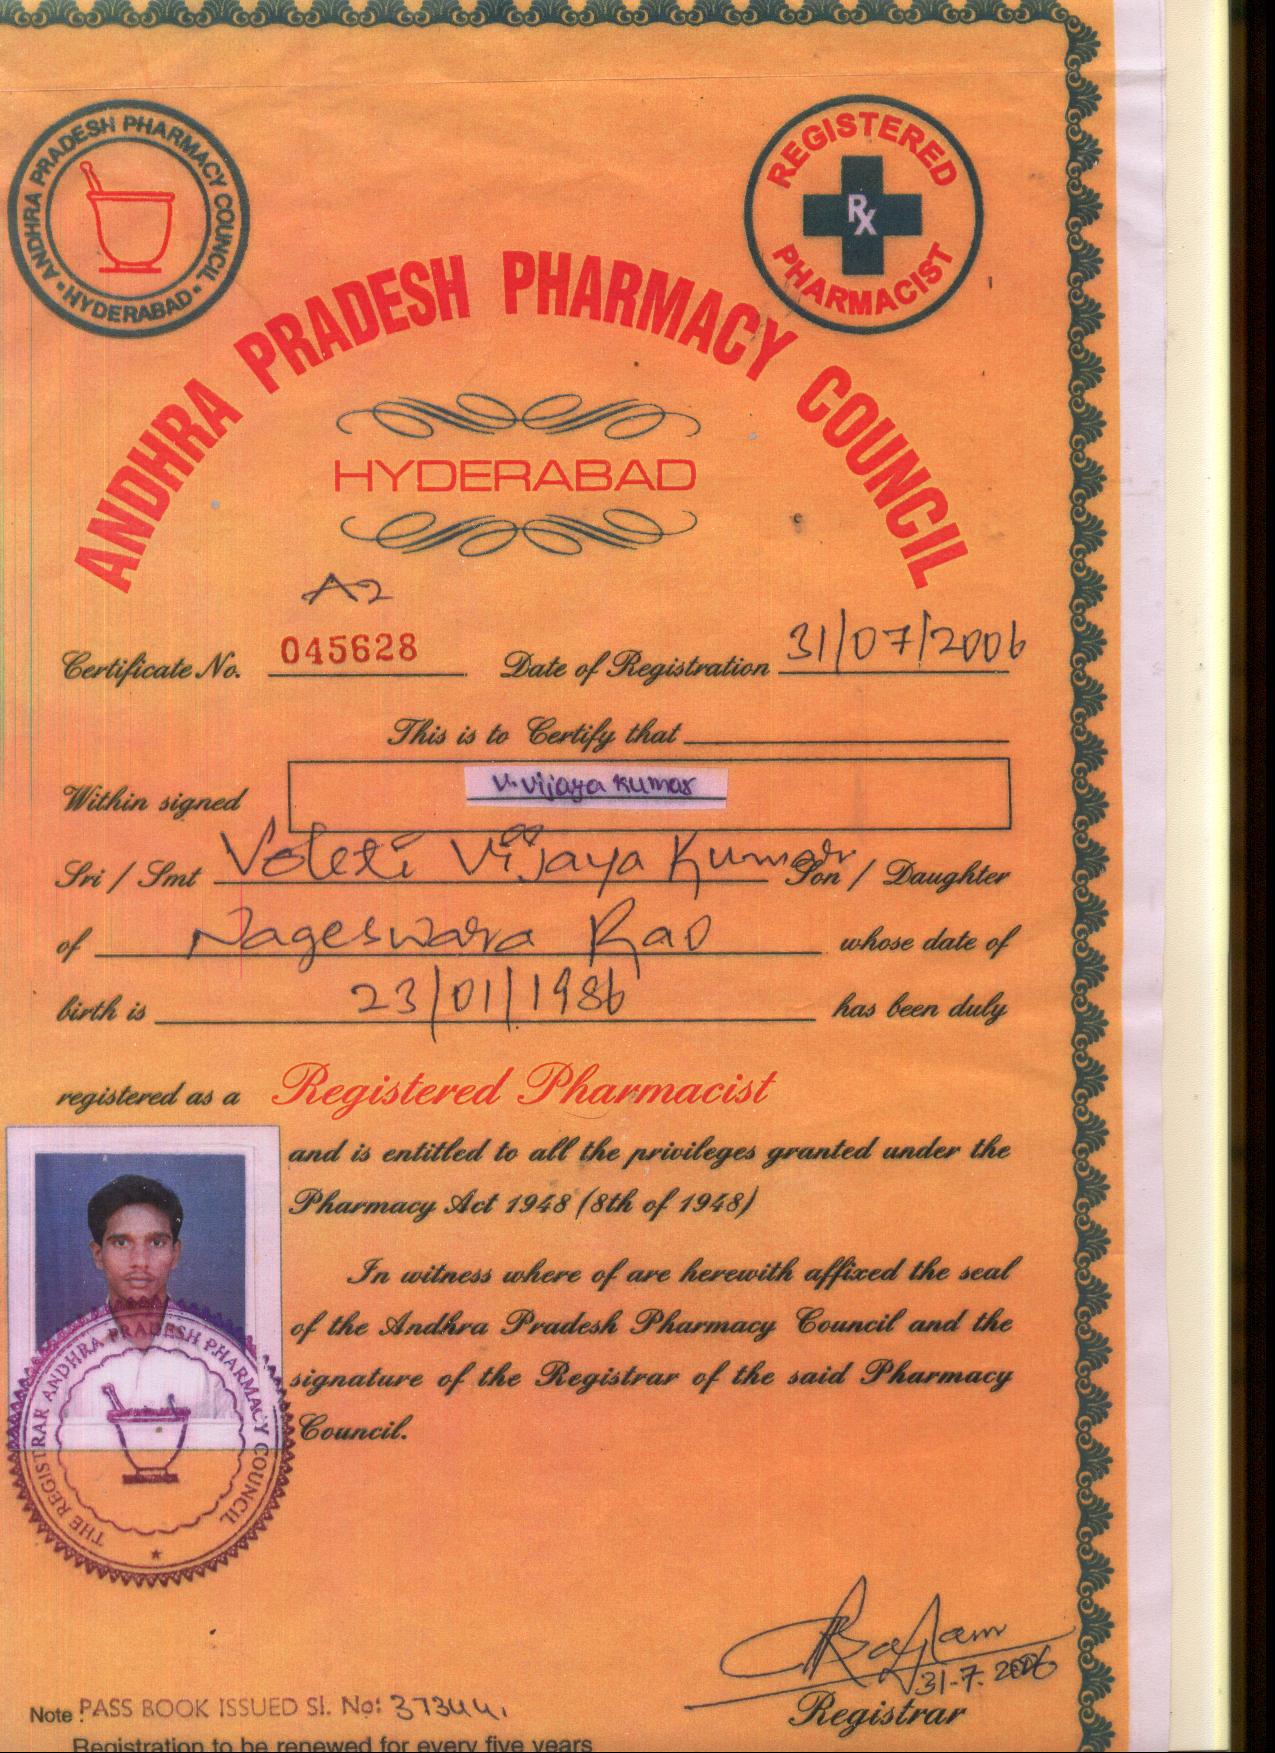 ANDHRA PRADESH PHARMACY COUNCIL
• HYDERABAD •
REGISTERED
Rx
PHARMACIST
ANDHRA PRADESH PHARMACY COUNCIL
HYDERABAD
A2
Certificate No. 045628 Date of Registration 31/07/2006
This is to Certify that
Within signed V. Vijaya Kumar
Sri / Smt Voleti Vijaya Kumar Son / Daughter
of Nageswara Rao whose date of
birth is 23/01/1986 has been duly
registered as a Registered Pharmacist
and is entitled to all the privileges granted under the
Pharmacy Act 1948 (8th of 1948)
In witness where of are herewith affixed the seal
of the Andhra Pradesh Pharmacy Council and the
signature of the Registrar of the said Pharmacy
Council.
THE REGISTRAR ANDHRA PRADESH PHARMACY COUNCIL
31-7-2006
Registrar
Note : PASS BOOK ISSUED Sl. No: 37344,
Registration to be renewed for every five years